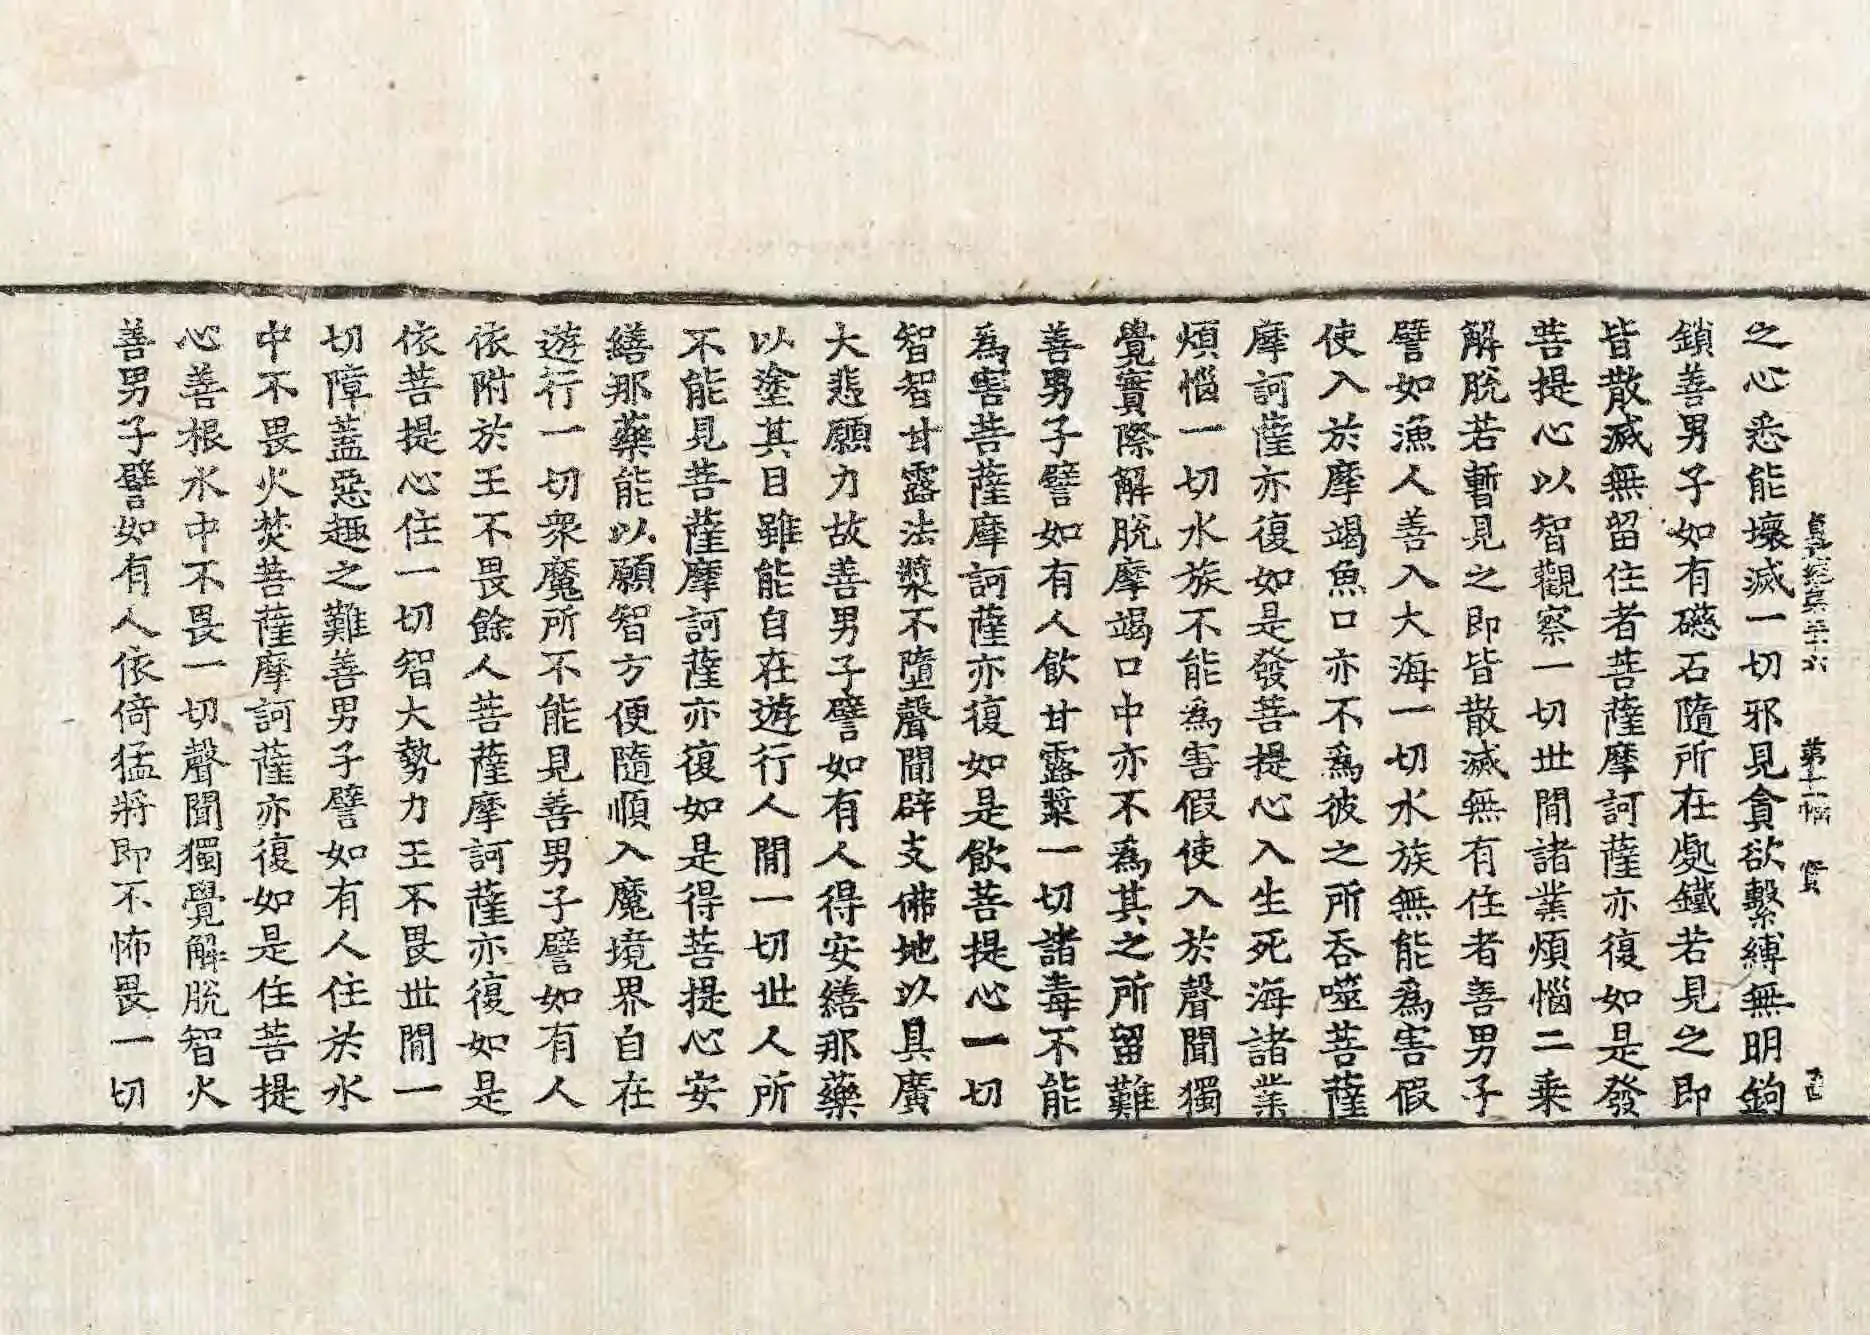 貞元經卷三十六　第十一幅　賢
之心悉能壞滅一切邪見貪欲繫縛無明鉤
鎖善男子如有礠石隨所在處鐵若見之即
皆散滅無留住者菩薩摩訶薩亦復如是發
菩提心以智觀察一切世間諸業煩惱二乘
解脫若暫見之即皆散滅無有住者善男子
譬如漁人善入大海一切水族無能為害假
使入於摩竭魚口亦不為彼之所吞噬菩薩
摩訶薩亦復如是發菩提心入生死海諸業
煩惱一切水族不能為害假使入於聲聞獨
覺實際解脫摩竭口中亦不為其之所留難
善男子譬如有人飲甘露漿一切諸毒不能
為害菩薩摩訶薩亦復如是飲菩提心一切
智智甘露法漿不墮聲聞辟支佛地以具廣
大悲願力故善男子譬如有人得安繕那藥
以塗其目雖能自在遊行人間一切世人所
不能見菩薩摩訶薩亦復如是得菩提心安
繕那藥能以願智方便隨順入魔境界自在
遊行一切眾魔所不能見善男子譬如有人
依附於王不畏餘人菩薩摩訶薩亦復如是
依菩提心住一切智大勢力王不畏世間一
切障蓋惡趣之難善男子譬如有人住於水
中不畏火焚菩薩摩訶薩亦復如是住菩提
心善根水中不畏一切聲聞獨覺解脫智火
善男子譬如有人依倚猛將即不怖畏一切